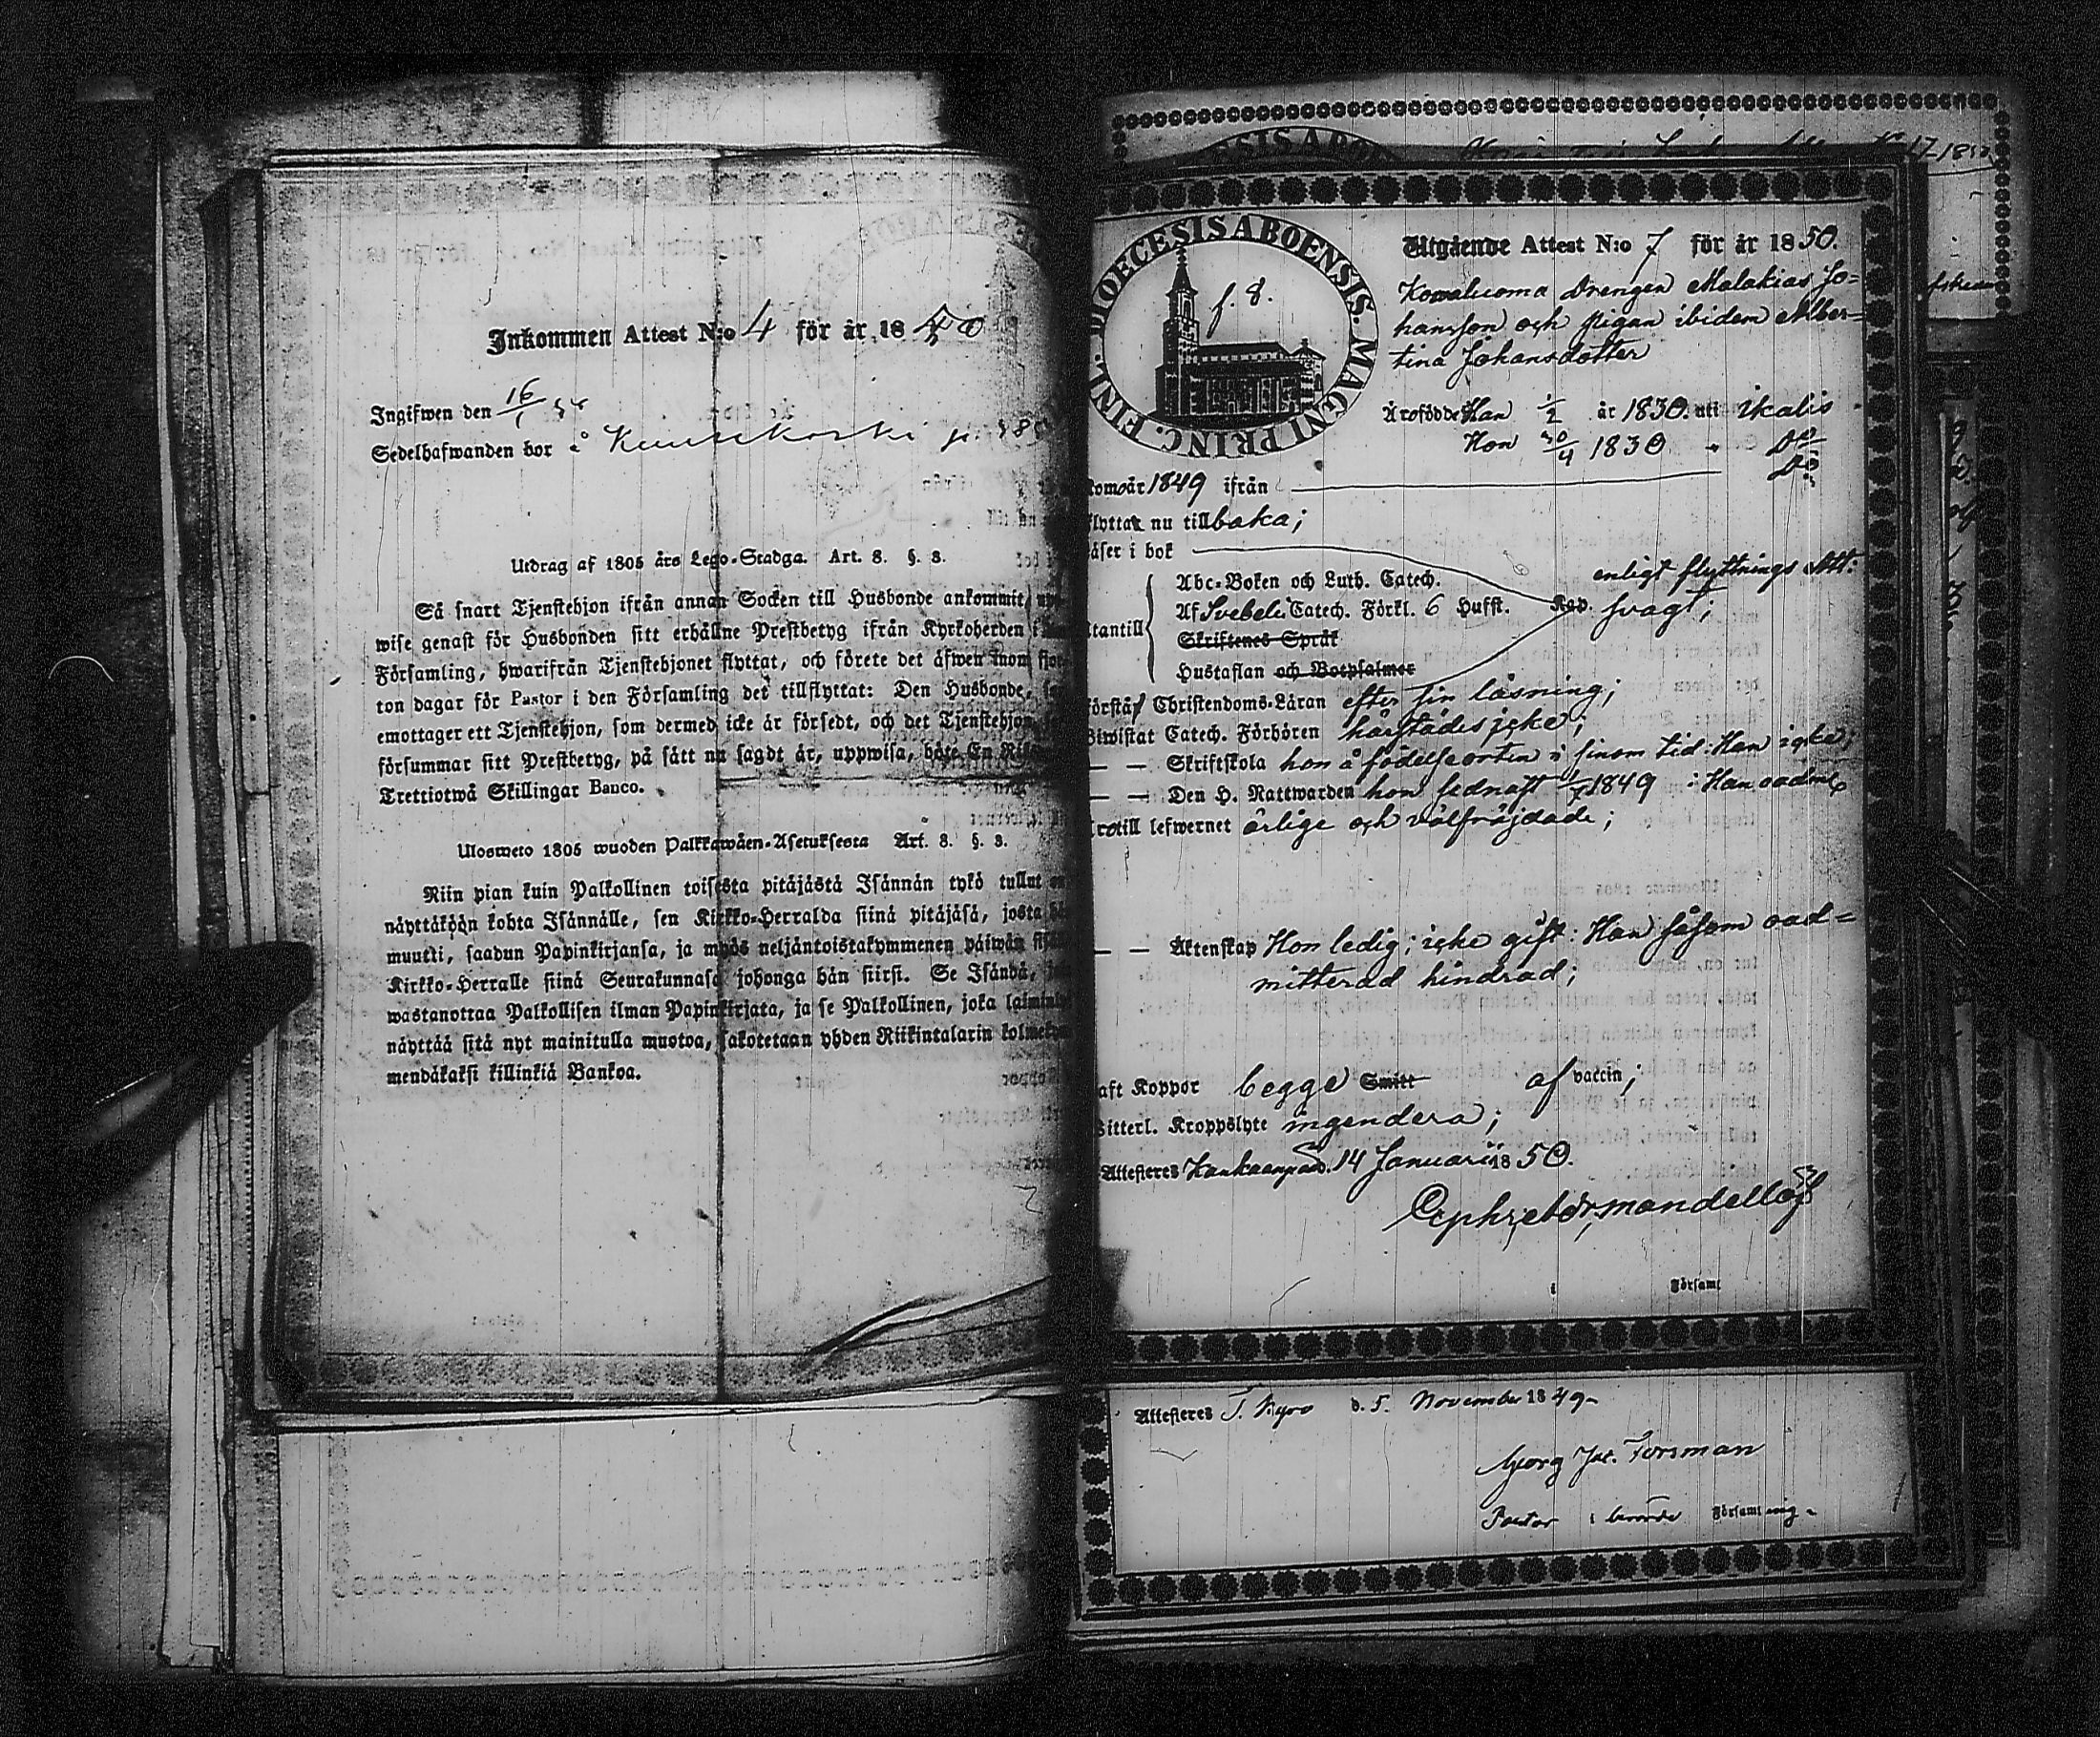 Inkommen Attest N:o 4 för år 1850
Ingifwen den 16/1 50
Sedelhafwanden bor å
Utdrag af 1805 års Lego-Stadga. Art. 8. §. 3.
Så snart Tjenstehjon ifrån annan Socken till Husbonde ankommit,
wise genast för Husbonden sitt erhållne Prestbetyg ifrån Kyrkoherden i
Församling, hwarifrån Tjenstehjonet flyttat, och förete det äfwen inom fjor-
ton dagar för Pastor i den Församling det tillflyttat: Den Husbonde,
emottager ett Tjenstehjon, som dermed icke är försedt, och det Tjenstehjon,
försummar sitt Prestbetyg, på sätt nu sagdt är, uppwisa, böte En
Trettiotwå Skillingar Banco.
Ulosweto 1805 wuoden Palkkawäen-Asetuksesta Art. 8. §. 3.
Niin pian kuin Palkollinen toisesta pitäjästä Isännän tykö tullut on
näyttäköön kohta Isännälle, sen Kirkko-Herralda siinä pitäjäsä, josta
muutti, saadun Papinkirjansa, ja myös neljäntoistakymmenen päiwän
Kirkko-Herralle siinä Seurakunnasa johonga hän siirsi. Se Isändä,
wastanottaa Palkollisen ilman Papinkirjata, ja se Palkollinen, joka
näyttää sitä nyt mainitulla muotoa, sakotetaan yhden Riikintalarin
mendäkaksi killinkiä Bankoa.
DIOECESIS ABOENSIS. MAGNI PRINC. FINL.
f. 8.
Utgående Attest N:o 7 för år 1850.
Kowaluoma Drengen Malakias Jo-
hansson och Pigan ibidem Alber-
tina Johansdotter
Äro födde Han 1/2 år 1830. uti Ikalis
Hon 30/4 1830 " Do
Do
komo år 1849 ifrån
flytta nu tillbaka;
läser i bok
Abc-Boken och Luth. Catech.
enligt flyttnings Att:
Af Svebeli Catech. Förkl. 6 Hufst. Kap. svagt;
utantill
Skriftenes Språk
Hustaflan och Botpsalmer
förstå Christendoms-Läran efter sin läsning;
Biwistat Catech. Förhören härstädes icke;
— — Skriftskola hon å födelseorten i sinom tid: Han icke;
— — Den H. Nattwarden hon sednast 1/7 1849 : Han oadm
till lefwernet ärlige och välfräjdade;
— — Äktenskap Hon ledig; icke gift: Han såsom oad=
mitterad hindrad;
haft Koppor begge Smitt af vaccin;
Witterl. Kroppslyte ingendera;
Attesteras Kankaanpää d. 14 Januarii 1850.
i Församl
Attesteras T. Kyro d. 5. November 1849
Georg Jac. Forsman
Pastor i Församling